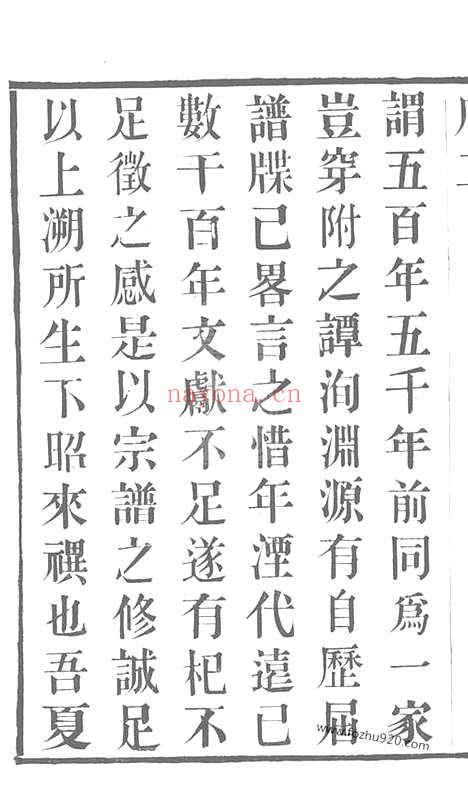 謂五百年五千年前同爲一家
豈穿附之譚洵淵源有自歷屆
譜牒已畧言之惜年湮代遠已
數千百年文獻不足遂有杞不
足徵之感是以宗譜之修誠足
以上溯所生下昭來禩也吾夏
nayona.cn
www.fozhu920.com